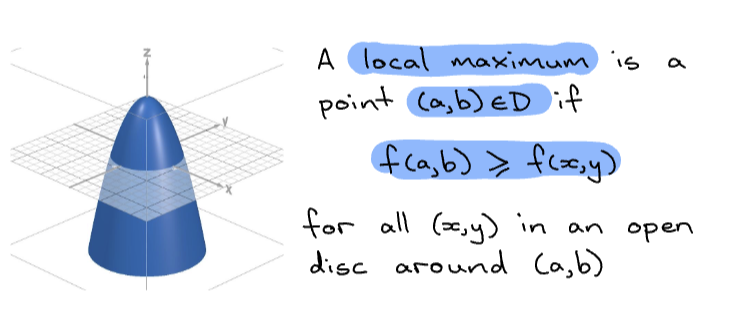 z
y
x
A local maximum is a
point (a,b) ∈ D if
f(a,b) ⩾ f(x,y)
for all (x,y) in an open
disc around (a,b)